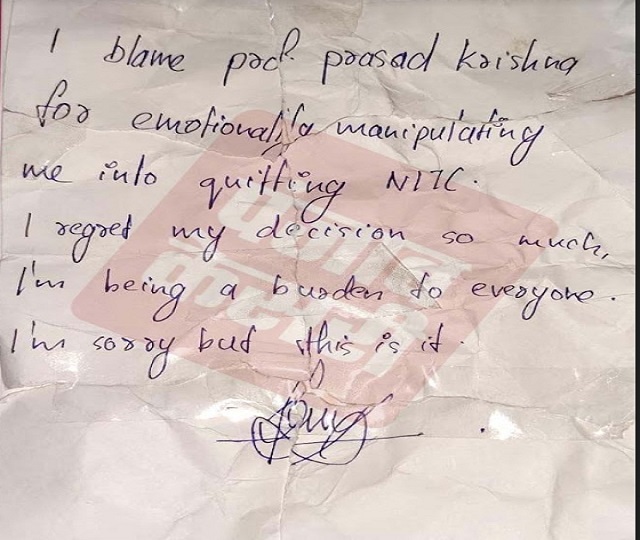 I blame prof prasad krishna
for emotionally manipulating
me into quitting NITC.
I regret my decision so much,
I'm being a burden to everyone.
I'm sorry but this is it.
पंजाब
केसरी